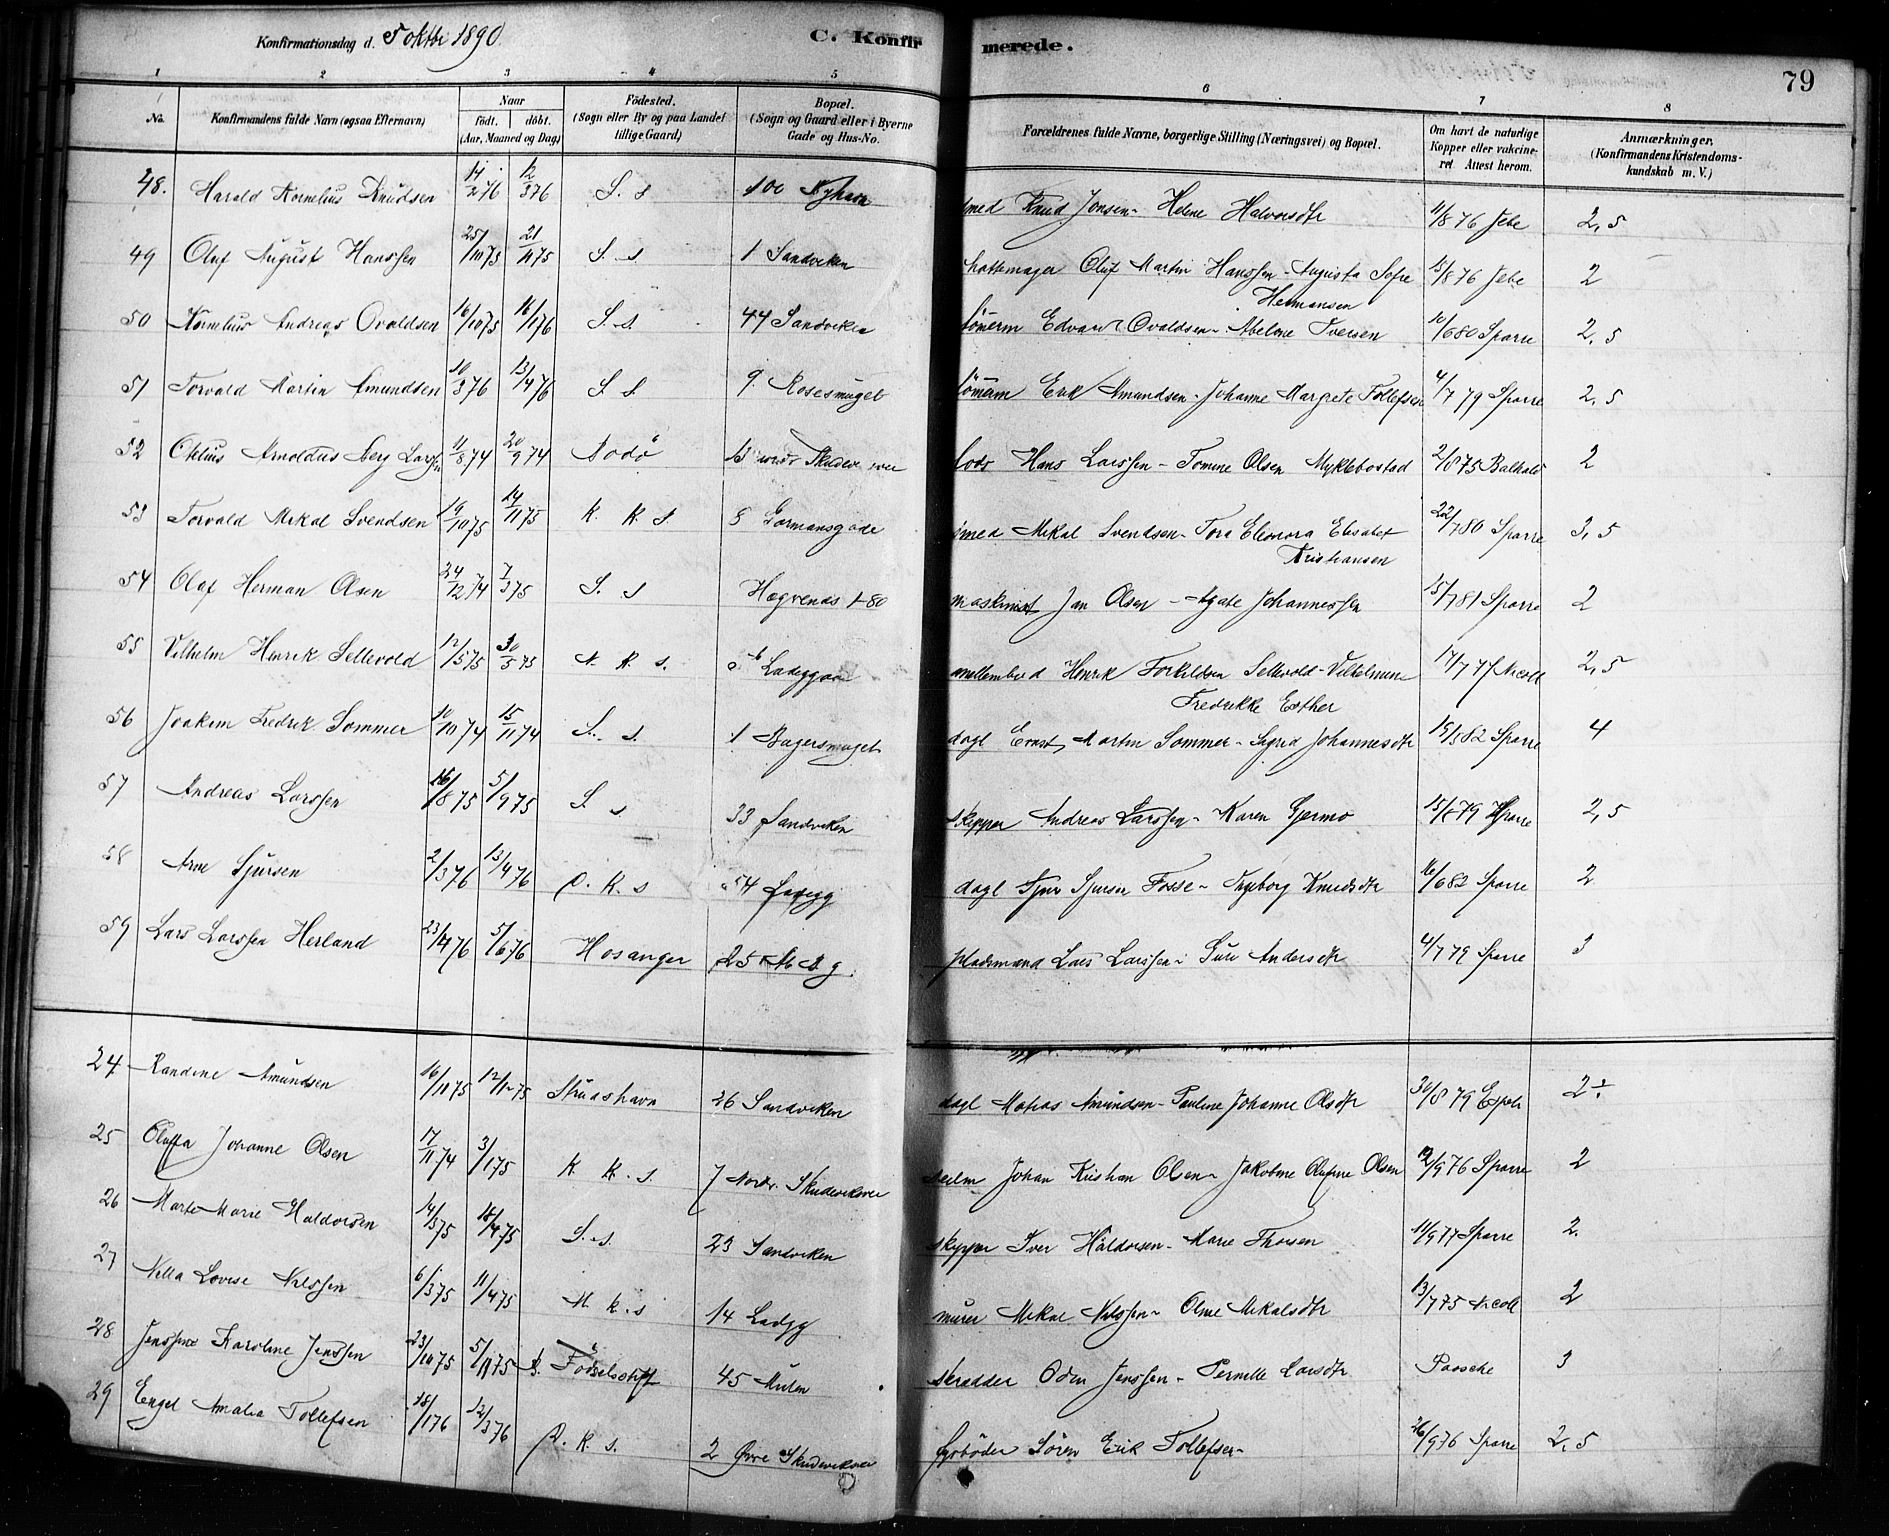 Konfirmationsdag d. 5 oktbr 1890. C. Konfirmerede. 79
1 2 3 4 5 6 7 8
No. Konfirmandens fulde Navn (ogsaa Efternavn) Naar født. døbt. (Aar, Maaned og Dag) Fødested. (Sogn eller By og paa Landet tillige Gaard) Bopæl. (Sogn og Gaard eller i Byerne Gade og Hus-No. Forældrenes fulde Navne, borgerlige Stilling (Næringsvei) og Bopæl. Om havt de naturlige Kopper eller vakcineret Attest herom. Anmærkninger, (Konfirmandens Kristendomskundskab m. V.)
48. Harald Kornelius Knudsen 14/2 76 12/3 76 S. s 100 Nyhavn smed Knud Jonsen - Helene Halvorsdtr 11/8 76 Jebe 2,5
49 Oluf August Hanssen 25/10 75 21/11 75 S. s 1 Sandviken Hattemager Oluf Martin Hanssen - Augusta Sofie Hermansen 15/8 76 Jebe 2
50 Kornelius Andreas Ovaldsen 16/10 75 16/1 76 S. s. 44 Sandviken tömerm Edvard Ovaldsen - Abelone Iversen 10/6 80 Sparre 2,5
51 Torvald Martin Amundsen 10/3 76 13/4 76 S s 9 Rosesmuget tömerm Erik Amundsen - Johanne Margrete Tollefsen 4/7 79 Sparre 2,5
52 Otelius Arnoldus Berg Larssen 11/8 74 20/9 74 Bodø 13 Skudevikvei lods Hans Larssen - Tomine Olsen Myklebostad 2/8 75 2
53 Torvald Mikal Svendsen 19/10 75 14/11 75 K. K. S. 8 Gormansgade smed Mikal Svendsen - Tora Eleonora Elisabet Kristiansen 22/7 80 Sparre 3,5
54 Olaf Herman Olsen 24/12 74 7/3 75 S. s Hægrenæs 1-80 maskinist Jan Olsen - Agate Johannessen 15/7 81 Sparre 2
55 Vilhelm Henrik Sellevold 12/5 75 30/5 75 N. K. s. Ladeggaa Henrik Torkildsen Sellevold - Vilhelmine Fredrikke Esther 17/7 77 Nicoll 2,5
56 Joakim Fredrik Sommer 10/10 74 15/11 74 S. s. 1 Bagersmuget dagl Ernst Martin Sommer - Sigrid Johannesdtr 15/5 82 Sparre 4
57 Andreas Larssen 16/8 75 5/9 75 S. s 33 Sandviken skipper Andreas Larssen - Karen Gjermo 15/8 79 Sparre 2,5
58 Arne Sjursen 2/3 76 13/4 76 D. K. s 54 Ladegg dagl Sjur Sjursen Fosse - Ingeborg Knudsdtr 16/6 82 Sparre 2
59 Lars Larssen Herland 23/4 76 5/6 76 Hosanger 25 pladsmand Lars Larssen - Guri Andersdtr 4/7 79 Sparre 3
24 Randine Amundsen 16/11 75 12/12 75 Struashavn 26 Sandviken dagl Matias Amundsen - Pauline Johanne Olsdtr 30/8 79 2÷
25 Oluffa Johanne Olsen 17/11 74 3/1 75 K K. s. 7 Nordr. Skudeviksvei seilm Johan Kristian Olsen - Jakobine Olufine Olsen 12/9 76 Sparre 2
26 Marte Marie Haldorsen 14/3 75 18/4 75 S. s. 23 Sandviken skipper Iver Haldorsen - Marie Thorsen 11/9 77 Sparre 2.
27 Nilla Lovise Nilssen 6/3 75 11/4 75 N. k. s 14 Ladgg murer Mikal Nilssen - Oline Mikalsdtr 13/7 75 Nicoll 2
28 Jenssine Karoline Jenssen 23/10 75 5/11 75 Fødselsstift 45 Mulen skrædder Odin Jenssen - Pernille Larsdtr Paasche 3
29 Engel Amalia Tollefsen 18/1 76 12/3 76 D. K. s. 2 Øvre Skudeviksvei fyrbøder Søren Erik Tollefsen - 26/9 76 Sparre 2,5